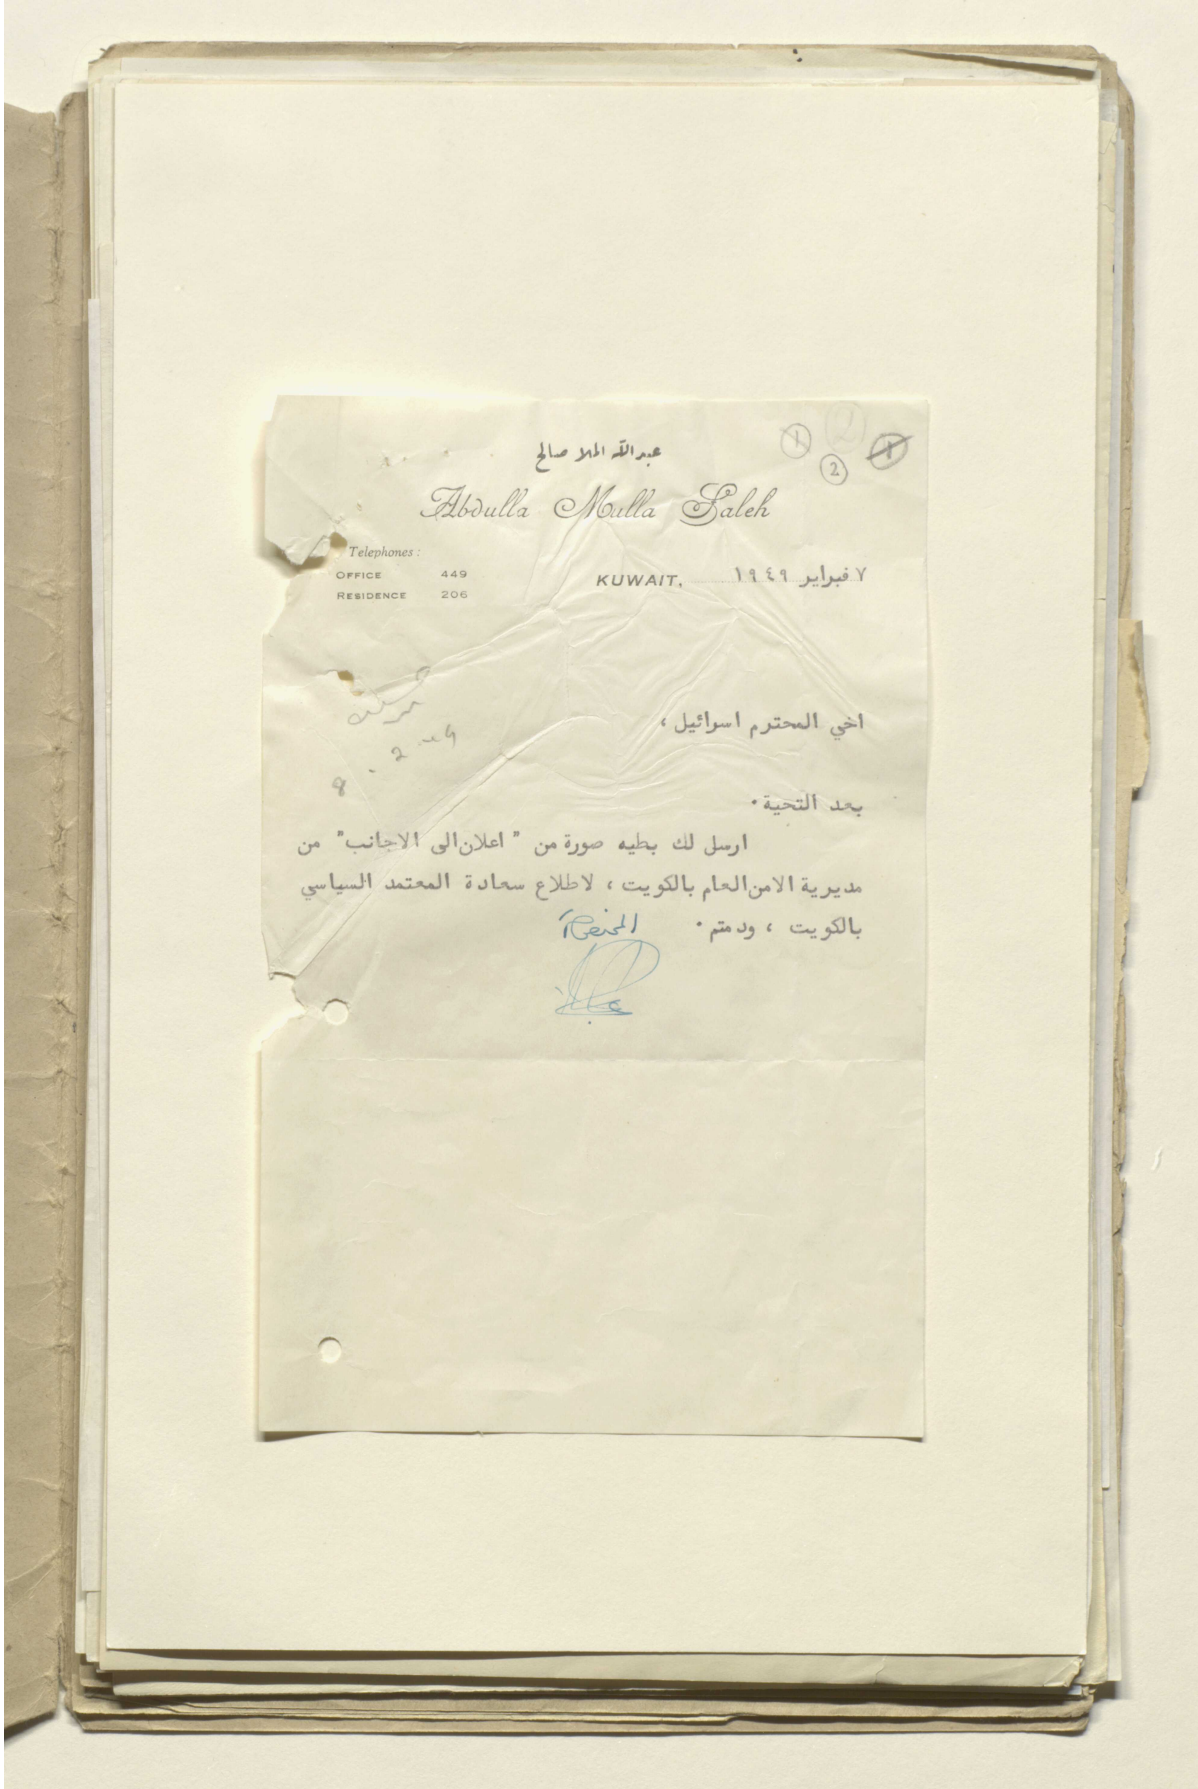 1 2
عبد الله الملا صالح
2 1
Abdulla Mulla Saleh
Telephones :
OFFICE 449
KUWAIT, ٧ فبراير ١٩٤٩
RESIDENCE 206
اخي المحترم اسرائيل ،
8 . 2 . 49
بعد التحية .
ارسل لك بطيه صورة من " اعلان الى الاجانب " من
مديرية الامن العام بالكويت ، لاطلاع سعادة المعتمد السياسي
بالكويت ، ودمتم .